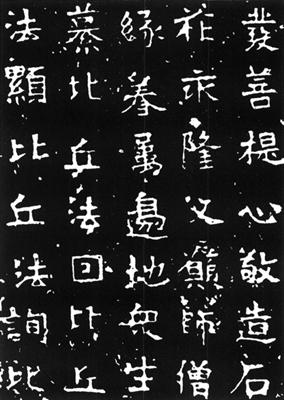 發善提心敬造石
祚永隆父願師僧
緣眷屬邊地眾生
慕比丘法回比丘
法顯比丘法詢比